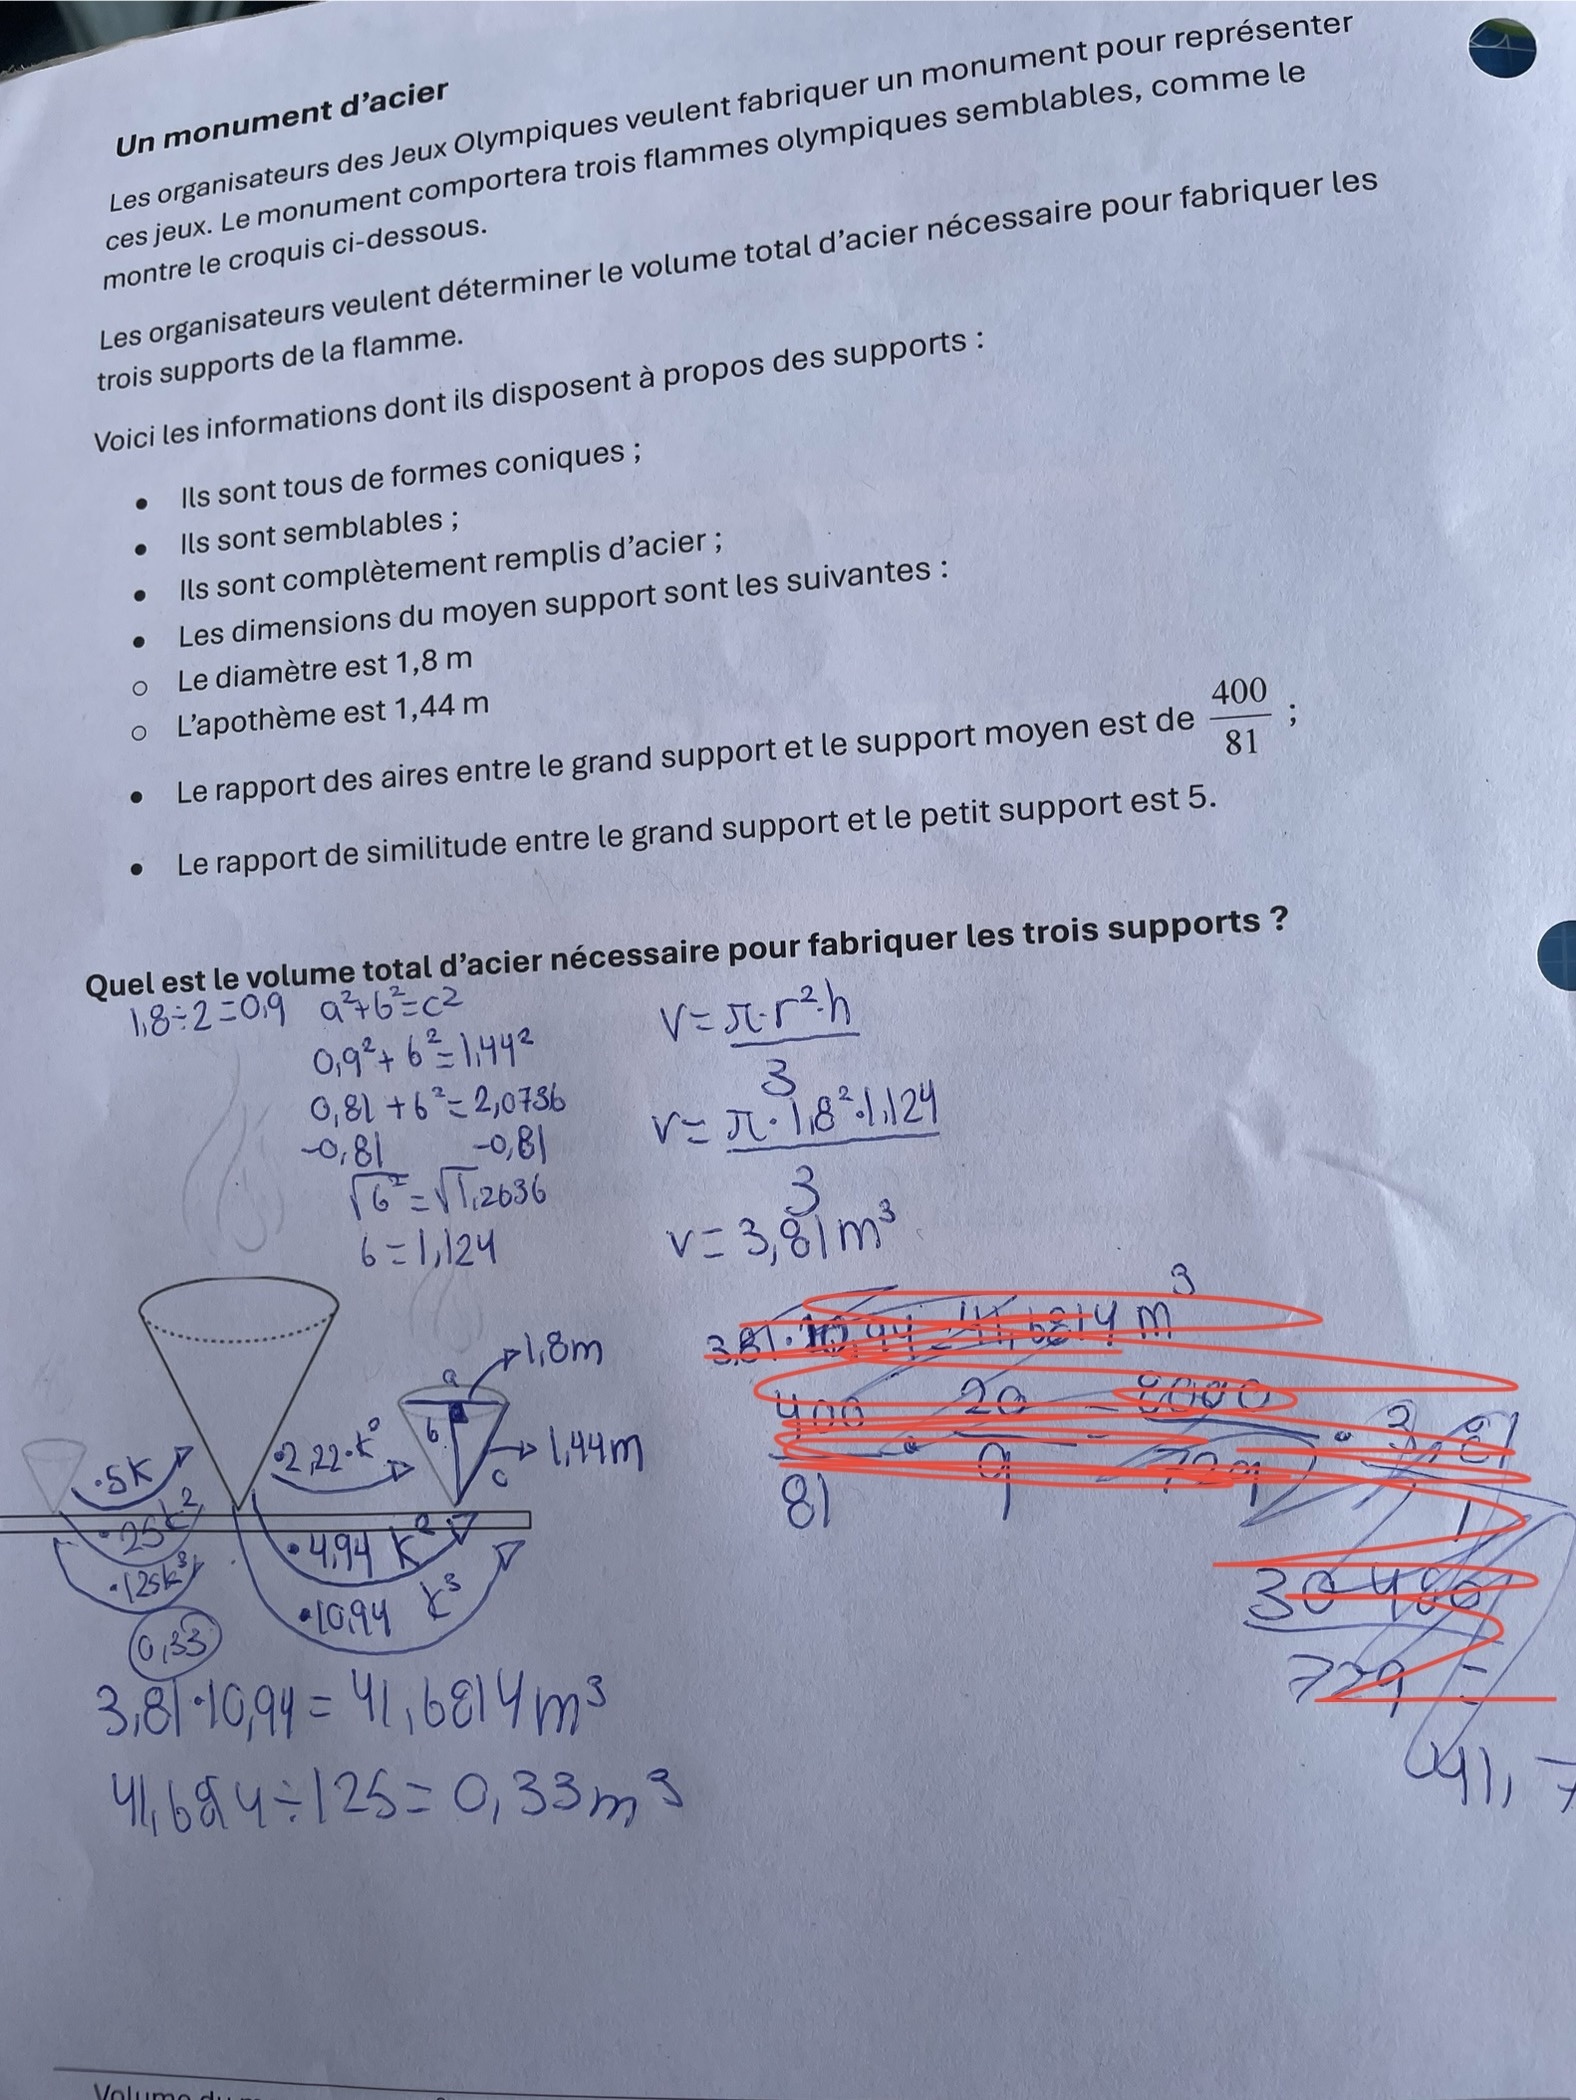 Un monument d'acier
Les organisateurs des Jeux Olympiques veulent fabriquer un monument pour représenter
ces jeux. Le monument comportera trois flammes olympiques semblables, comme le
montre le croquis ci-dessous.
Les organisateurs veulent déterminer le volume total d'acier nécessaire pour fabriquer les
trois supports de la flamme.
Voici les informations dont ils disposent à propos des supports :
• Ils sont tous de formes coniques ;
• Ils sont semblables ;
• Ils sont complètement remplis d'acier ;
• Les dimensions du moyen support sont les suivantes :
○ Le diamètre est 1,8 m
○ L'apothème est 1,44 m
• Le rapport des aires entre le grand support et le support moyen est de 400/81 ;
• Le rapport de similitude entre le grand support et le petit support est 5.
Quel est le volume total d'acier nécessaire pour fabriquer les trois supports ?
1,8÷2=0,9
a²+b²=c²
0,9²+b²=1,44²
0,81+b²=2,0736
-0,81 -0,81
√b²=√1,2636
b=1,124
V=π·r²·h
3
V=π·1,8²·1,124
3
V=3,81m³
3,81·10,94=41,6814m³
400/81 · 20/9 = 8000/729 · 3,81/1
30480
729 =
41,7
1,8m
a
b
c
1,44m
·5k
·2,22·k
·25k²
·4,94 k²
·125k³
·10,94 k³
0,33
3,81·10,94=41,6814m³
41,6814÷125=0,33m³